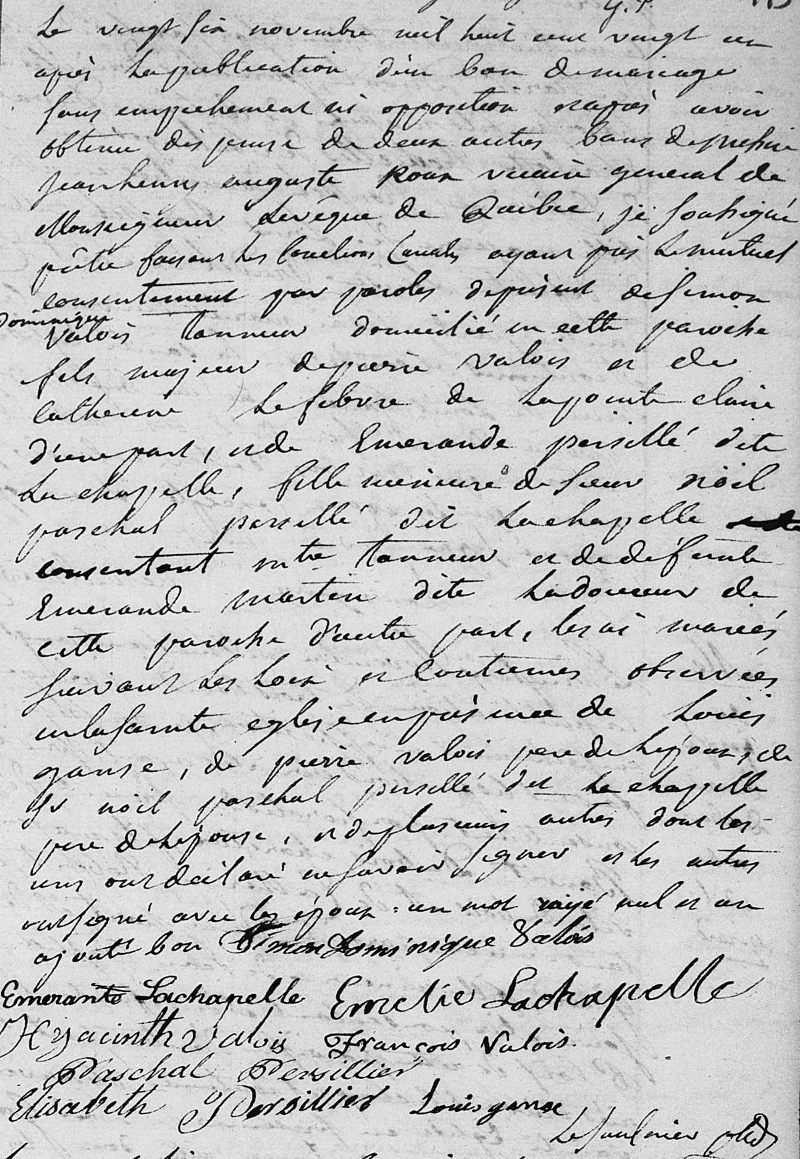 G. P.
Le vingt six novembre mil huit cent vingt un
après la publication d'un ban de mariage
sans empêchement ni opposition et après avoir
obtenu dispense de deux autres bans de messire
jean henry auguste Roux vicaire general de
Monseigneur Levêque de Québec, je soussigné
prêtre faisant les fonctions Curiales ayant pris le mutuel
consentement par paroles de présent de Simon
Dominique
Valois tanneur domicilié en cette paroisse
fils majeur de pierre Valois et de
Catherine Lefebvre de Lapointe claire
d'une part, et de Emerande persillé dite
La chapelle, fille mineure de Sieur nöel
paschal persillé dit Lachapelle
consentant mtre tanneur et de défunte
Emerande martin dite Ladouceur de
cette paroisse d'autre part, les ai mariés
suivant les loix et coutumes observées
en la sainte eglise en présence de Louis
ganse, de pierre valois pere de l'époux, de
Sr nöel paschal persillé dit La chapelle
pere de l'épouse, et de plusieurs autres dont les
uns ont déclaré ne savoir signer et les autres
ont signé avec les époux. un mot rayé nul et un
ajouté bon Simon Dominique Valois
Emerante Lachapelle Emelie Lachapelle
Hyacinth Valois François Valois.
Paschal Persillier
Elisabeth Persillier Louis ganse
Le Saulnier